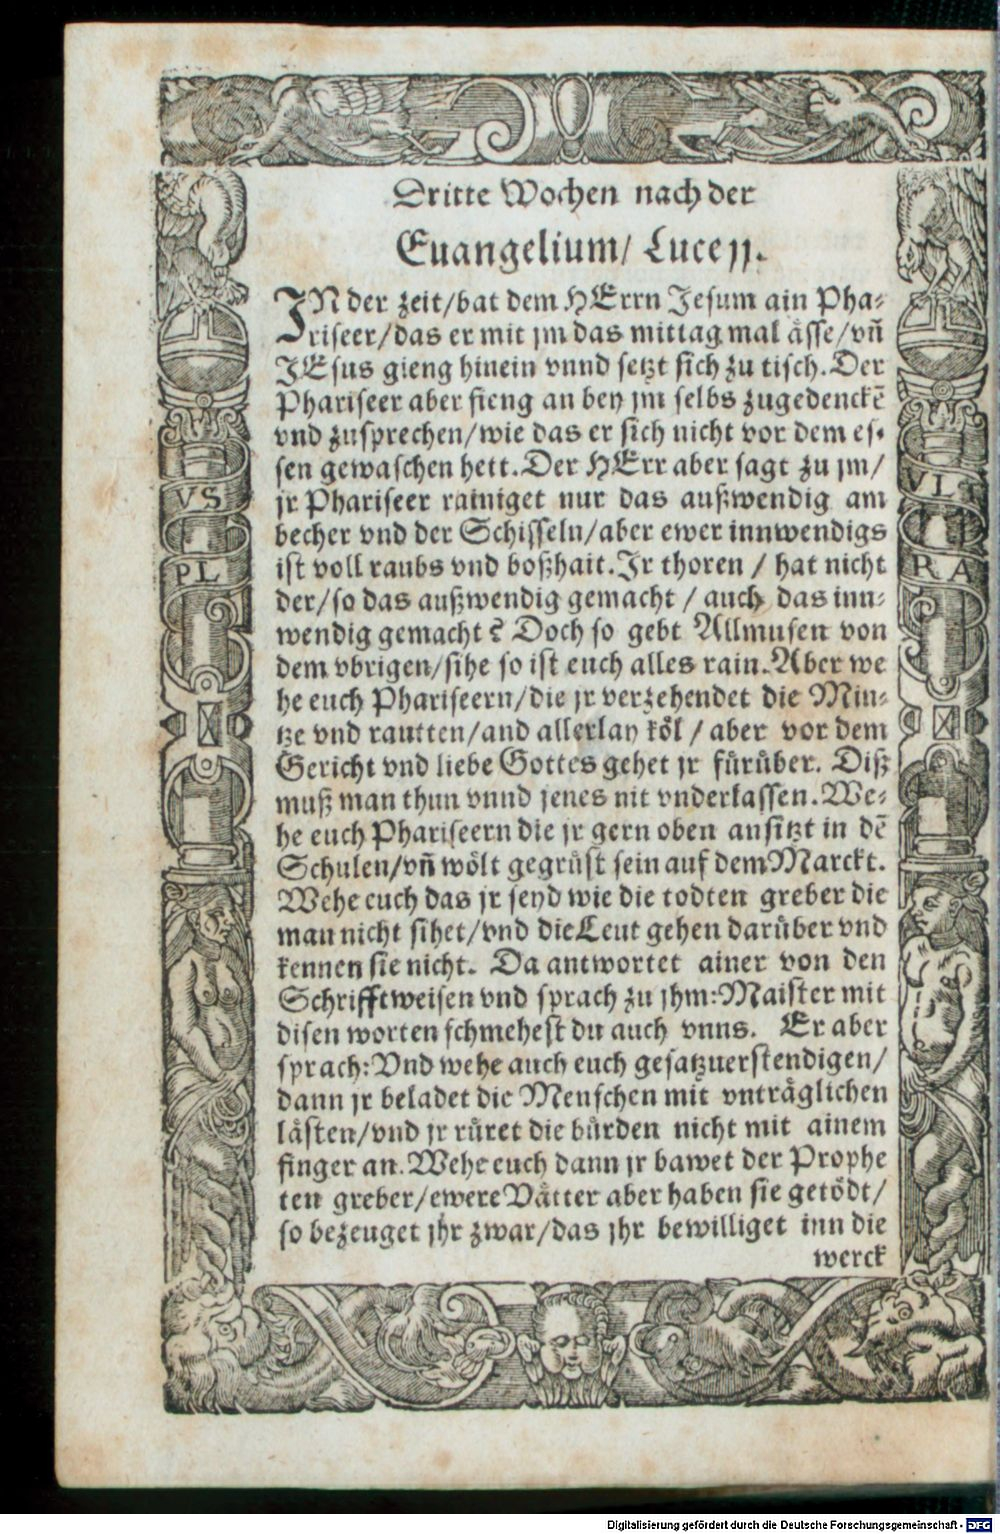 Dritte Wochen nach der
Euangelium/ Luce 11.
IN der zeit/bat dem HErrn Jesum ain Pha⸗
riseer/das er mit jm das mittag mal ässe/vñ
JEsus gieng hinein vnnd setzt sich zu tisch. Der
Phariseer aber fieng an bey jm selbs zugedenckẽ
vnd zusprechen/wie das er sich nicht vor dem es⸗
sen gewaschen hett. Der HErr aber sagt zu jm/
jr Phariseer rainiget nur das außwendig am
becher vnd der Schisseln/aber ewer innwendigs
ist voll raubs vnd boßhait. Jr thoren / hat nicht
der/so das außwendig gemacht / auch das inn⸗
wendig gemacht? Doch so gebt Allmusen von
dem vbrigen/sihe so ist euch alles rain. Aber we
he euch Phariseern/die jr verzehendet die Min⸗
tze vnd rautten/and allerlay köl / aber vor dem
Gericht vnd liebe Gottes gehet jr fürüber. Diß
muß man thun vnnd jenes nit vnderlassen. We⸗
he euch Phariseern die jr gern oben ansitzt in dẽ
Schulen/vñ wölt gegrüst sein auf dem Marckt.
Wehe euch das jr seyd wie die todten greber die
man nicht sihet/vnd die Leut gehen darüber vnd
kennen sie nicht. Da antwortet ainer von den
Schrifftweisen vnd sprach zu jhm: Maister mit
disen worten schmehest du auch vnns. Er aber
sprach: Vnd wehe auch euch gesatzuerstendigen/
dann jr beladet die Menschen mit vnträglichen
lästen/vnd jr rüret die bürden nicht mit ainem
finger an. Wehe euch dann jr bawet der Prophe
ten greber/ewere Vätter aber haben sie getödt/
so bezeuget jhr zwar/das jhr bewilliget inn die
werck
VS
PL
VL
RA
Digitalisierung gefördert durch die Deutsche Forschungsgemeinschaft - DFG